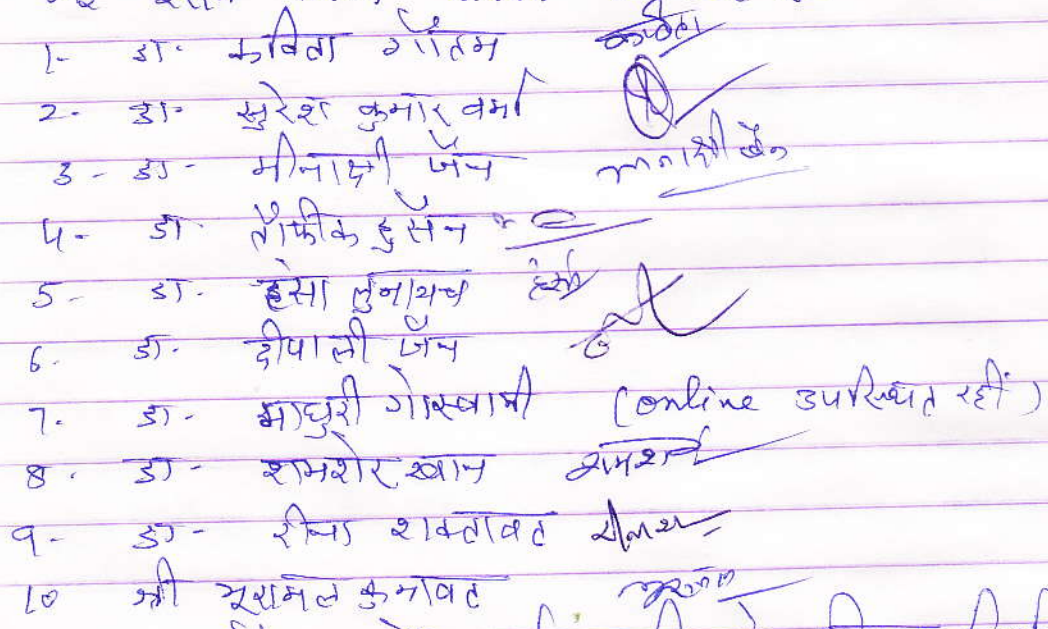 1- डा. कविता गौतम कविता
2- डा- सुरेश कुमार वर्मा
3- डा- मीनाक्षी जैन मीनाक्षी जैन
4- डा. तौफीक हुसैन
5- डा. हंसा लुनायच हंसा
6. डा. दीपाली जैन
7. डा- माधुरी गोस्वामी (online उपस्थित रहीं)
8. डा- शमशेर खान शमशेर
9- डा- रीना शक्तावत
10 श्री भूरामल कुमावट